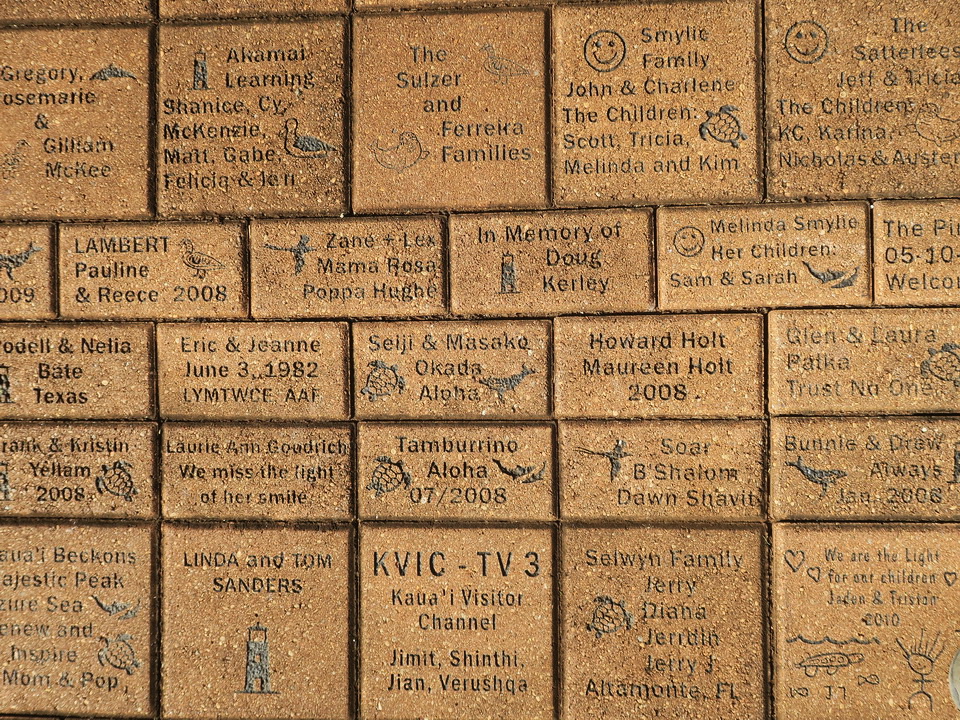 Gregory,
&
Gilliam
McKee
Akamai
Learning
Shanice, Cy,
McKenzie,
Matt, Gabe,
Felicia & Jeri
The
Sulzer
and
Ferreira
Families
Smylie
Family
John & Charlene
The Children:
Scott, Tricia,
Melinda and Kim
The
Satterlees
Jeff & Tricia
The Children:
KC, Karina,
Nicholas & Austen
LAMBERT
Pauline
& Reece 2008
Zane + Lex
Mama Rosa
Poppa Hughe
In Memory of
Doug
Kerley
Melinda Smylie
Her Children:
Sam & Sarah
The
05-10-
& Nelia
Bate
Texas
Eric & Jeanne
June 3, 1982
LYMTWCE, AAF
Seiji & Masako
Okada
Aloha
Howard Holt
Maureen Holt
2008
Glen & Laura
Patka
Trust No One
& Kristin
Yellam
2008
Laurie Ann Goodrich
We miss the light
of her smile
Tamburrino
Aloha
07/2008
Soar
B'Shalom
Dawn Shavit
Bunnie & Drew
Always
Jan. 2008
Beckons
Peak
Sea
and
Inspire
Mom & Pop
LINDA and TOM
SANDERS
KVIC - TV 3
Kaua'i Visitor
Channel
Jimit, Shinthi,
Jian, Verushqa
Selwyn Family
Jerry
Diana
Jerridin
Jerry J
Altamonte, FL
We are the Light
for our children
Jaden & Tristan
2010